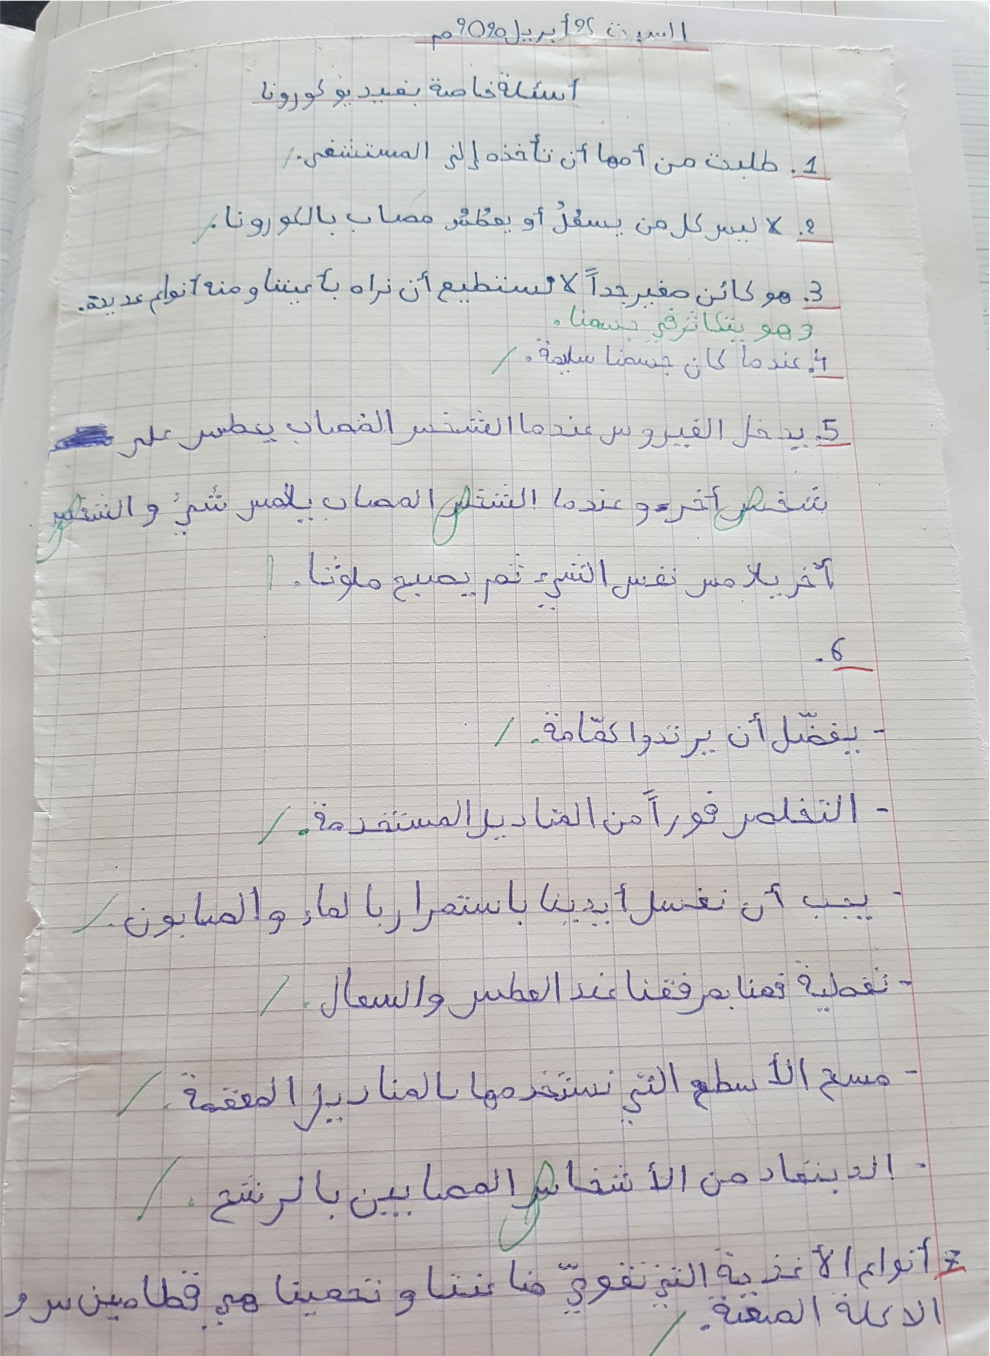 السبت 25 أبريل 2020م
أسئلة خاصة بفيديو كورونا
1. طلبت من أمها أن تأخذه إلى المستشفى.
2. لا ليس كل من يسعُلُ أو يعطُسُ مصاب بالكورونا.
3. هو كائن صغير جداً لا نستطيع أن نراه بأعيننا ومنه أنواع عديدة.
وهو يتكاثر في جسمنا.
4. عندما كان جسمنا سليمة.
5. يدخل الفيروس عندما الشخس المصاب يعطس على
شخص أخر و عندما الشخص المصاب يلامس شيئ و الشخص
آخر يلامس نفس الشيء ثم يصبح ملوثا.
6.
- يفضّل أن يرتدوا كمّامة.
- التخلص فوراً من المناديل المستخدمة.
- يجب أن نغسل أيدينا باستمرار بالماء والصابون.
- تغطية فمنا بمرفقنا عند العطس والسعال.
- مسح الأسطح التي نستخدمها بالمناديل المعقمة.
- الابتعاد من الأشخاص المصابين بالرشح.
7 أنواع الأغذية التي تقويّ مناعتنا و تحمينا هي فطامين س و
الاكلة الصحية.